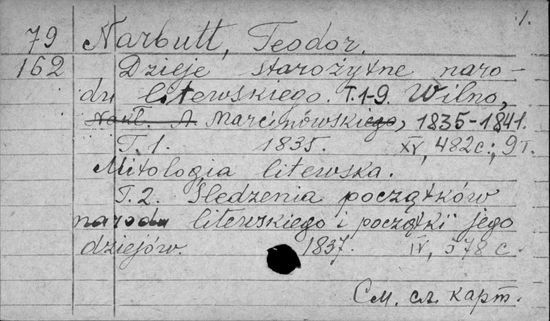 1.
79 Narbutt, Teodor.
162 Dzieje starożytne naro-
du litewskiego. T.1-9. Wilno,
Nakł. A. Marcinowskiego, 1835-1841.
T.1. 1835. XV, 482 c.; 9 т.
Mitologia litewska.
T.2. Śledzenia początków
narodu litewskiego i początki jego
dziejów. 1837. IV, 578 c.
См. сл. карт.